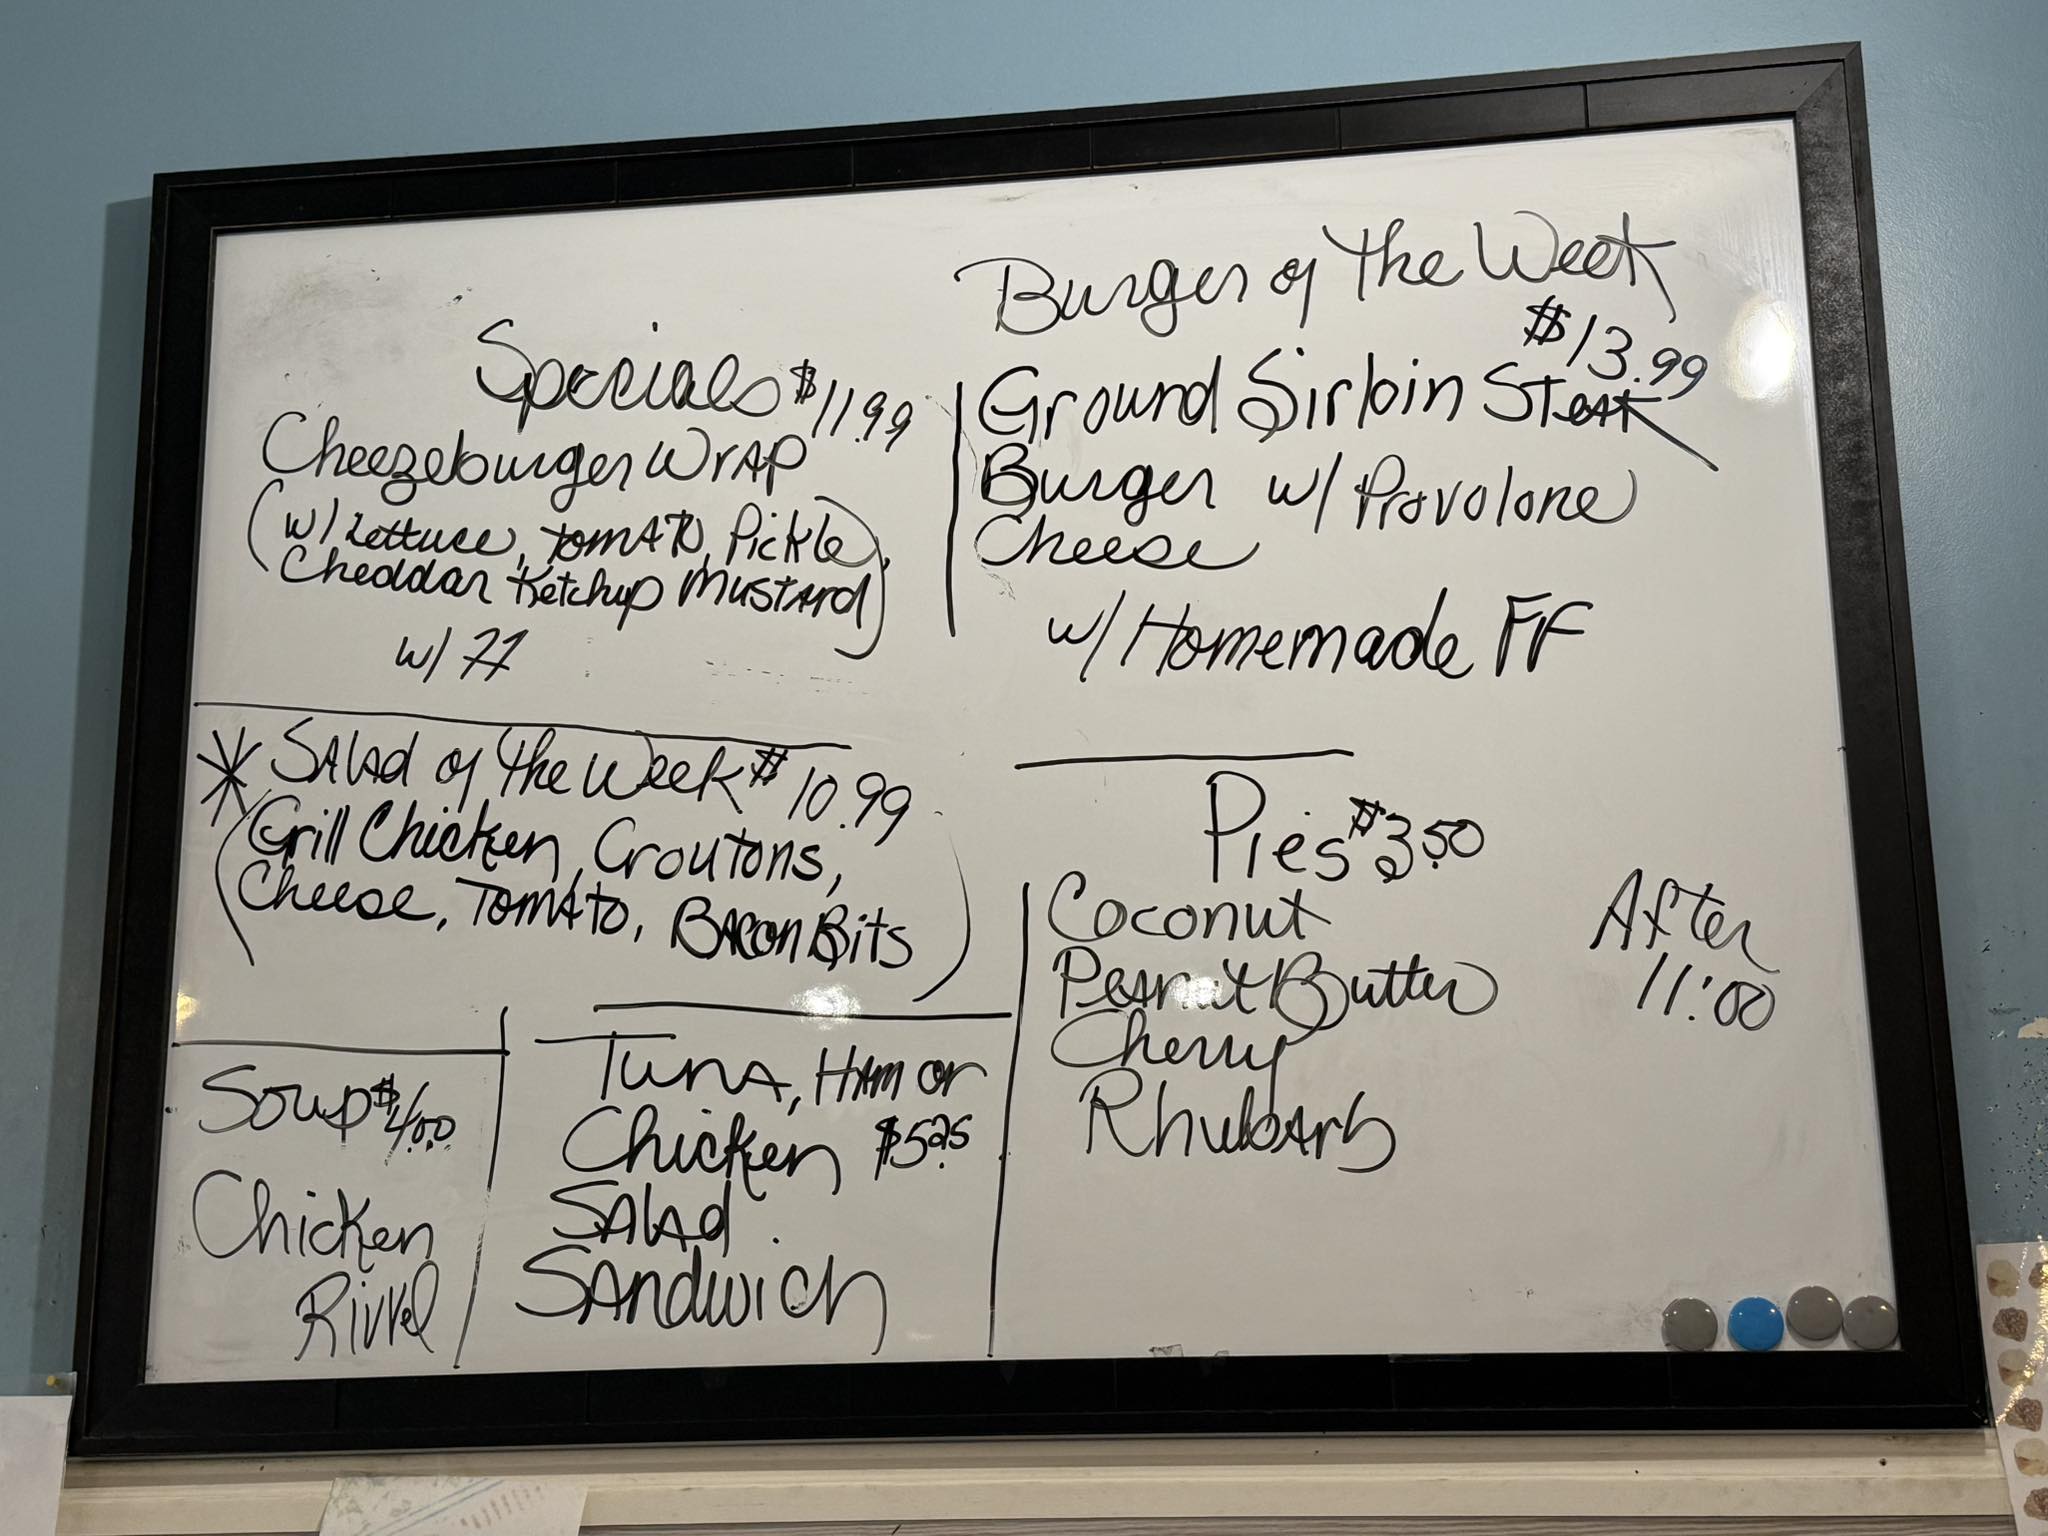 Specials $11.99
Cheezeburger Wrap
(w/ Lettuce, Tomato, Pickle,
Cheddar Ketchup Mustard)
w/ FF
Burger of the Week
$13.99
Ground Sirloin Steak
Burger w/ Provolone
Cheese
w/ Homemade FF
* Salad of the Week $10.99
(Grill Chicken, Croutons,
Cheese, Tomato, Bacon Bits)
Soup $4.00
Chicken
Rivvel
Tuna, Ham or
Chicken $5.25
Salad
Sandwich
Pies $3.50
Coconut
Peanut Butter
Cherry
Rhubarb
After
11:00